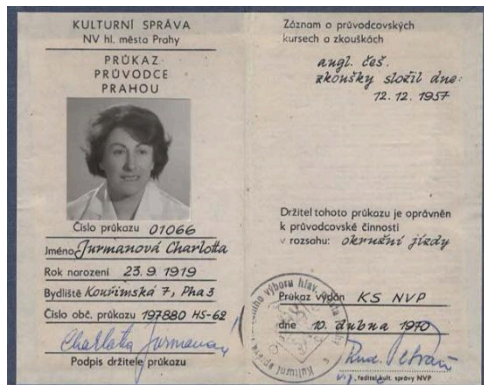 KULTURNÍ SPRÁVA
NV hl. města Prahy
PRŮKAZ
PRŮVODCE
PRAHOU
Číslo průkazu 01066
Jméno Jurmanová Charlotta
Rok narození 23. 9 1919
Bydliště Kouřimská 7, Pha 3
Číslo obč. průkazu 197880 HS-62
Charlotta Jurmanová
Podpis držitele průkazu
Záznam o průvodcovských
kursech a zkouškách
angl. čes.
zkoušky složil dne:
12. 12. 1957
Držitel tohoto průkazu je oprávněn
k průvodcovské činnosti
v rozsahu: okružní jízdy
Průkaz vydán KS NVP
dne 10. dubna 1970
ředitel kult. správy NVP